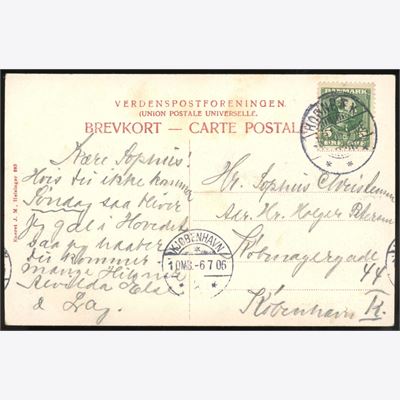 VERDENSPOSTFORENINGEN.
(UNION POSTALE UNIVERSELLE.)
BREVKORT — CARTE POSTALE
DANMARK
5 5
ØRE
HORNBÆK
Kære Sophus!
Hvis Du ikke kommer
Søndag saa bliver
jeg gal i Hovedet
saa jeg haaber
Du kommer
mange Hilsner
Else
Hr. Sophus Christensen
Adr. Hr. Holger Petersen
Købmagergade
44
København K.
KJØBENHAVN
1 OMB. -6 7 06
Eneret J. M., Helsingør